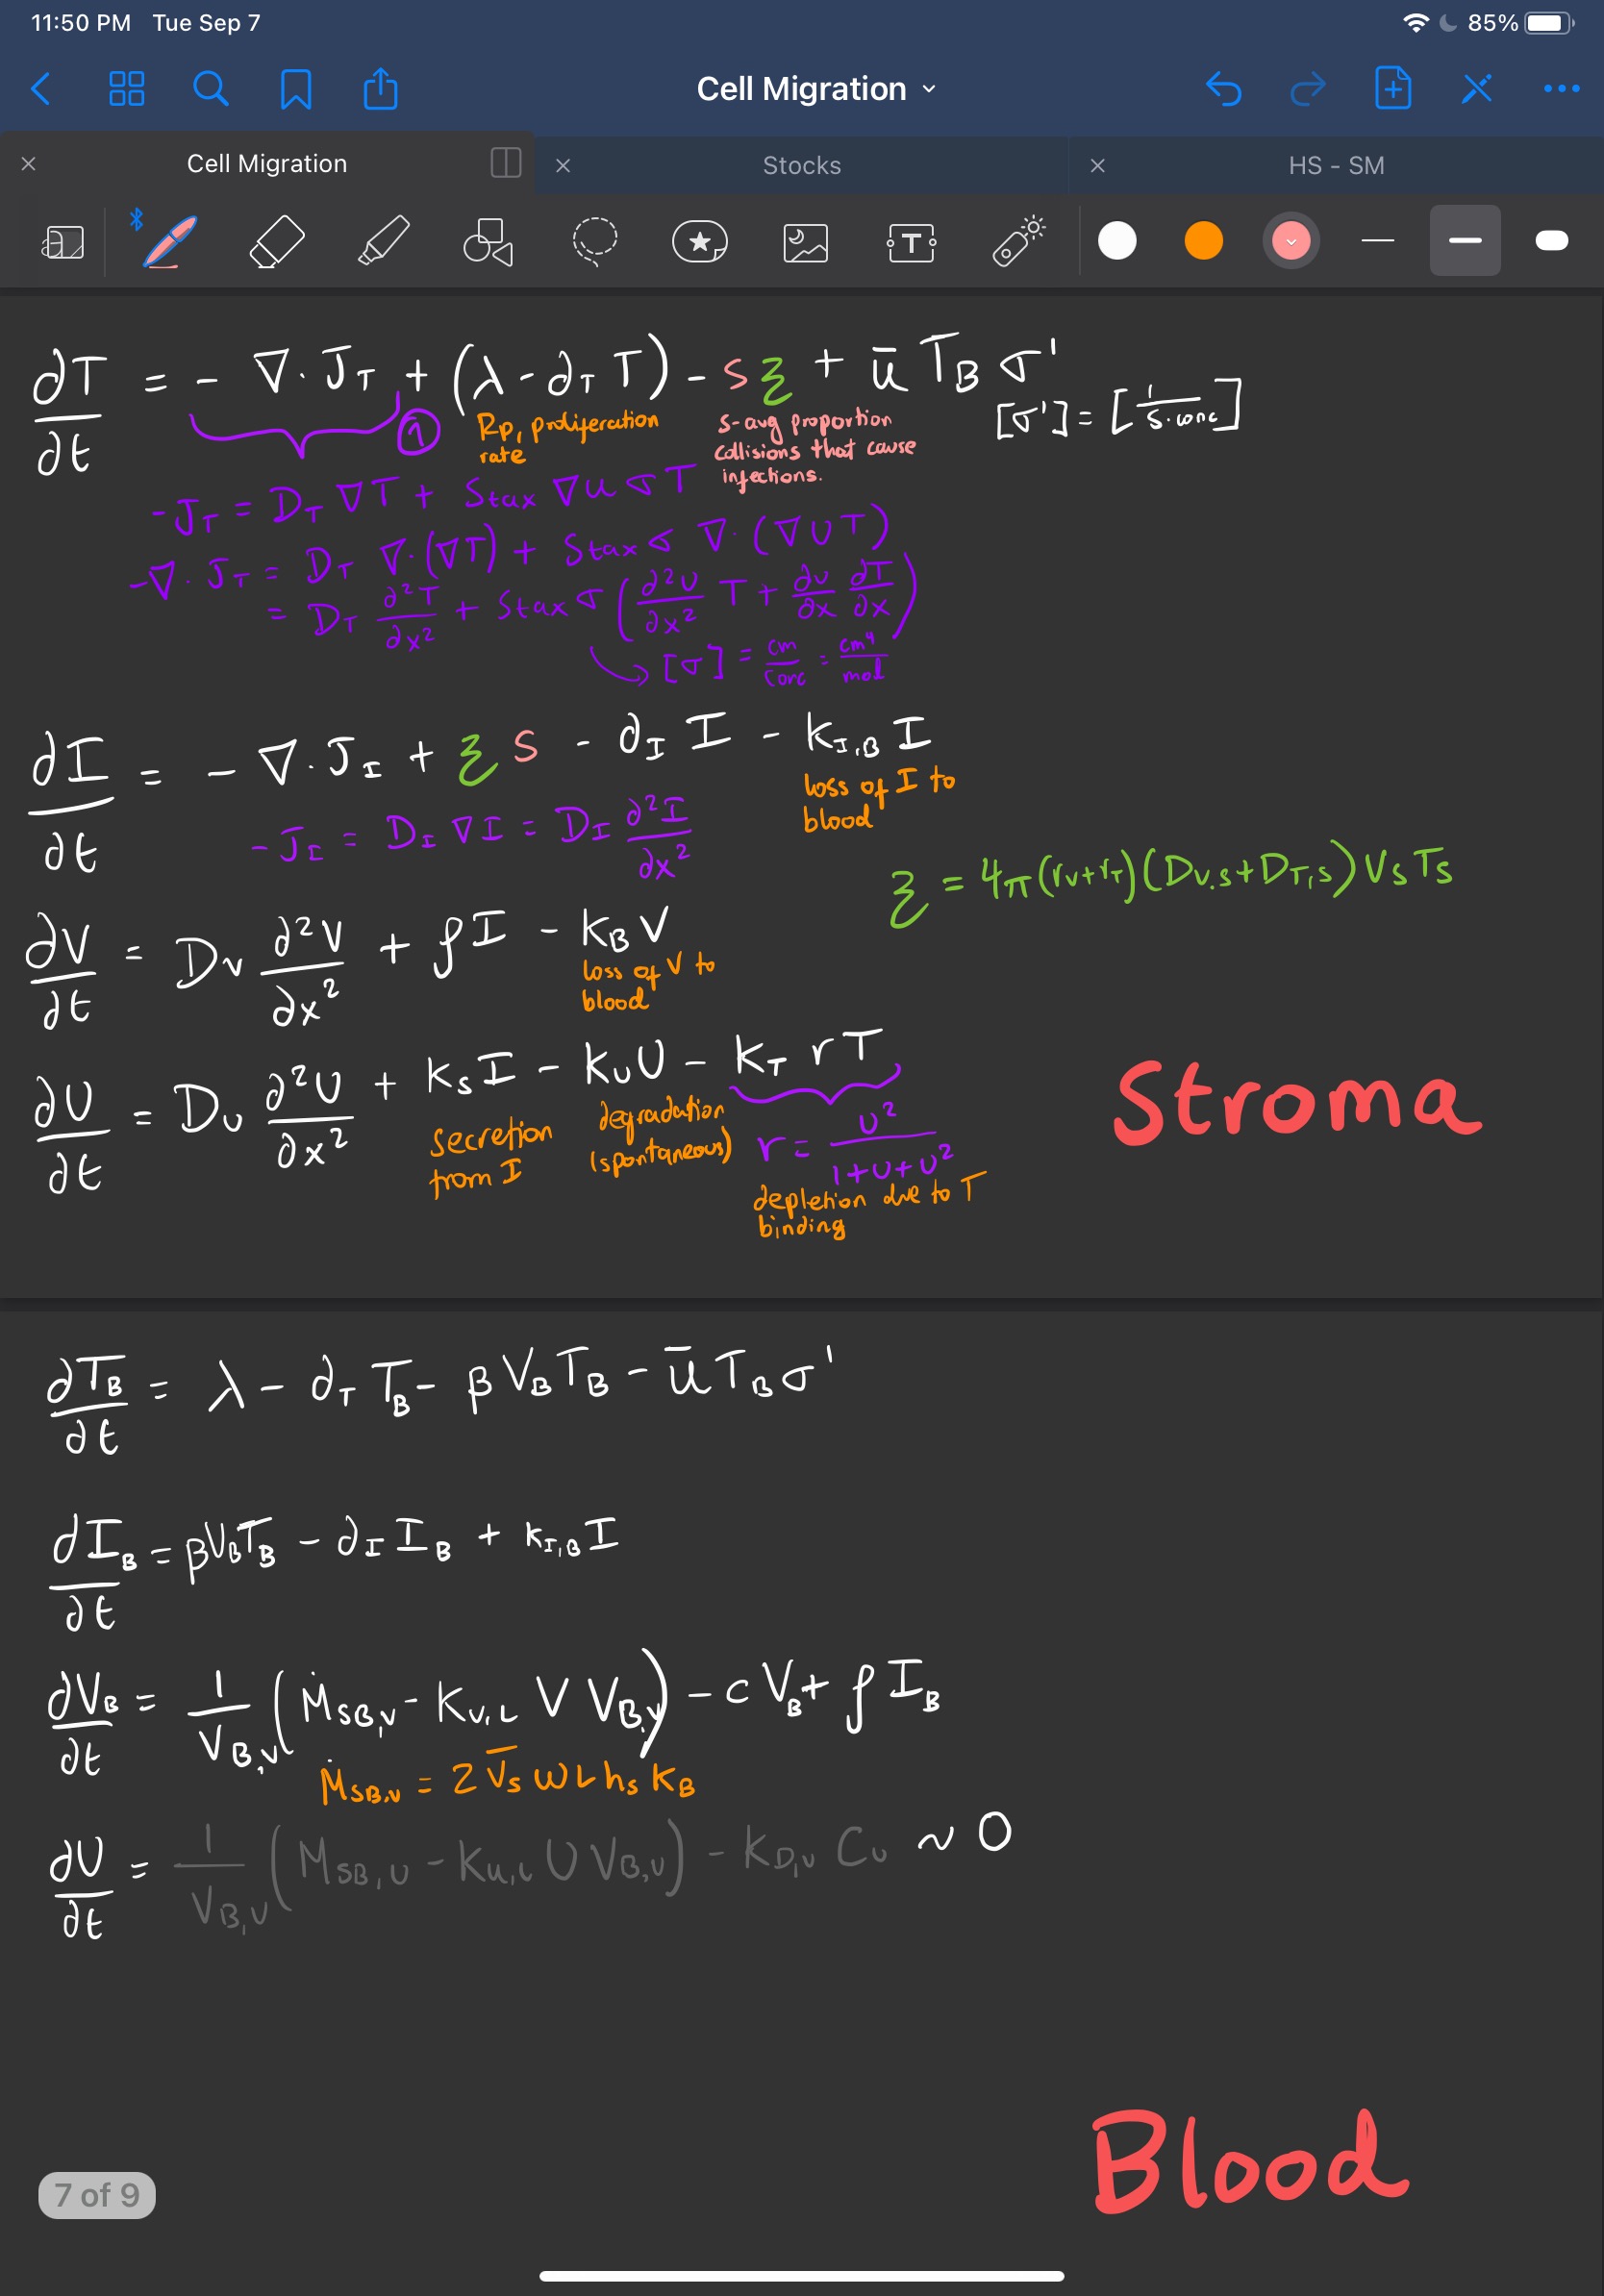 11:50 PM Tue Sep 7
85%
Cell Migration
Cell Migration
Stocks
HS - SM
∂T/∂t = - ∇·J_T + (λ - ∂_T T) - s ξ + ū T_B σ'
[σ'] = [1/(s·conc)]
①
Rp, proliferation rate
s-avg proportion
collisions that cause
infections.
-J_T = D_T ∇T + Stax ∇u σ T
-∇·J_T = D_T ∇·(∇T) + Stax σ ∇·(∇U T)
= D_T ∂²T/∂x² + Stax σ (∂²U/∂x² T + ∂U/∂x ∂T/∂x)
[σ] = cm/conc = cm⁴/mol
∂I/∂t = - ∇·J_I + ξ s - ∂_I I - k_I,B I
loss of I to
blood
-J_I = D_I ∇I = D_I ∂²I/∂x²
ξ = 4π(r_V+r_T)(D_V,s+D_T,s) V_s T_s
∂V/∂t = D_V ∂²V/∂x² + ρI - k_B V
loss of V to
blood
∂U/∂t = D_U ∂²U/∂x² + k_s I - k_U U - k_T r T
secretion
from I
degradation
(spontaneous)
r = U²/(1+U+U²)
depletion due to T
binding
Stroma
∂T_B/∂t = λ - ∂_T T_B - β V_B T_B - ū T_B σ'
∂I_B/∂t = β V_B T_B - ∂_I I_B + k_I,B I
∂V_B/∂t = 1/V_B,V (Ṁ_SB,V - K_V,L V V_B,V) - c V_B + ρ I_B
Ṁ_SB,V = 2 V̄_s W L h_s K_B
∂U/∂t = 1/V_B,U (M_SB,U - K_U,L U V_B,U) - K_D,U C_U ~ 0
Blood
7 of 9